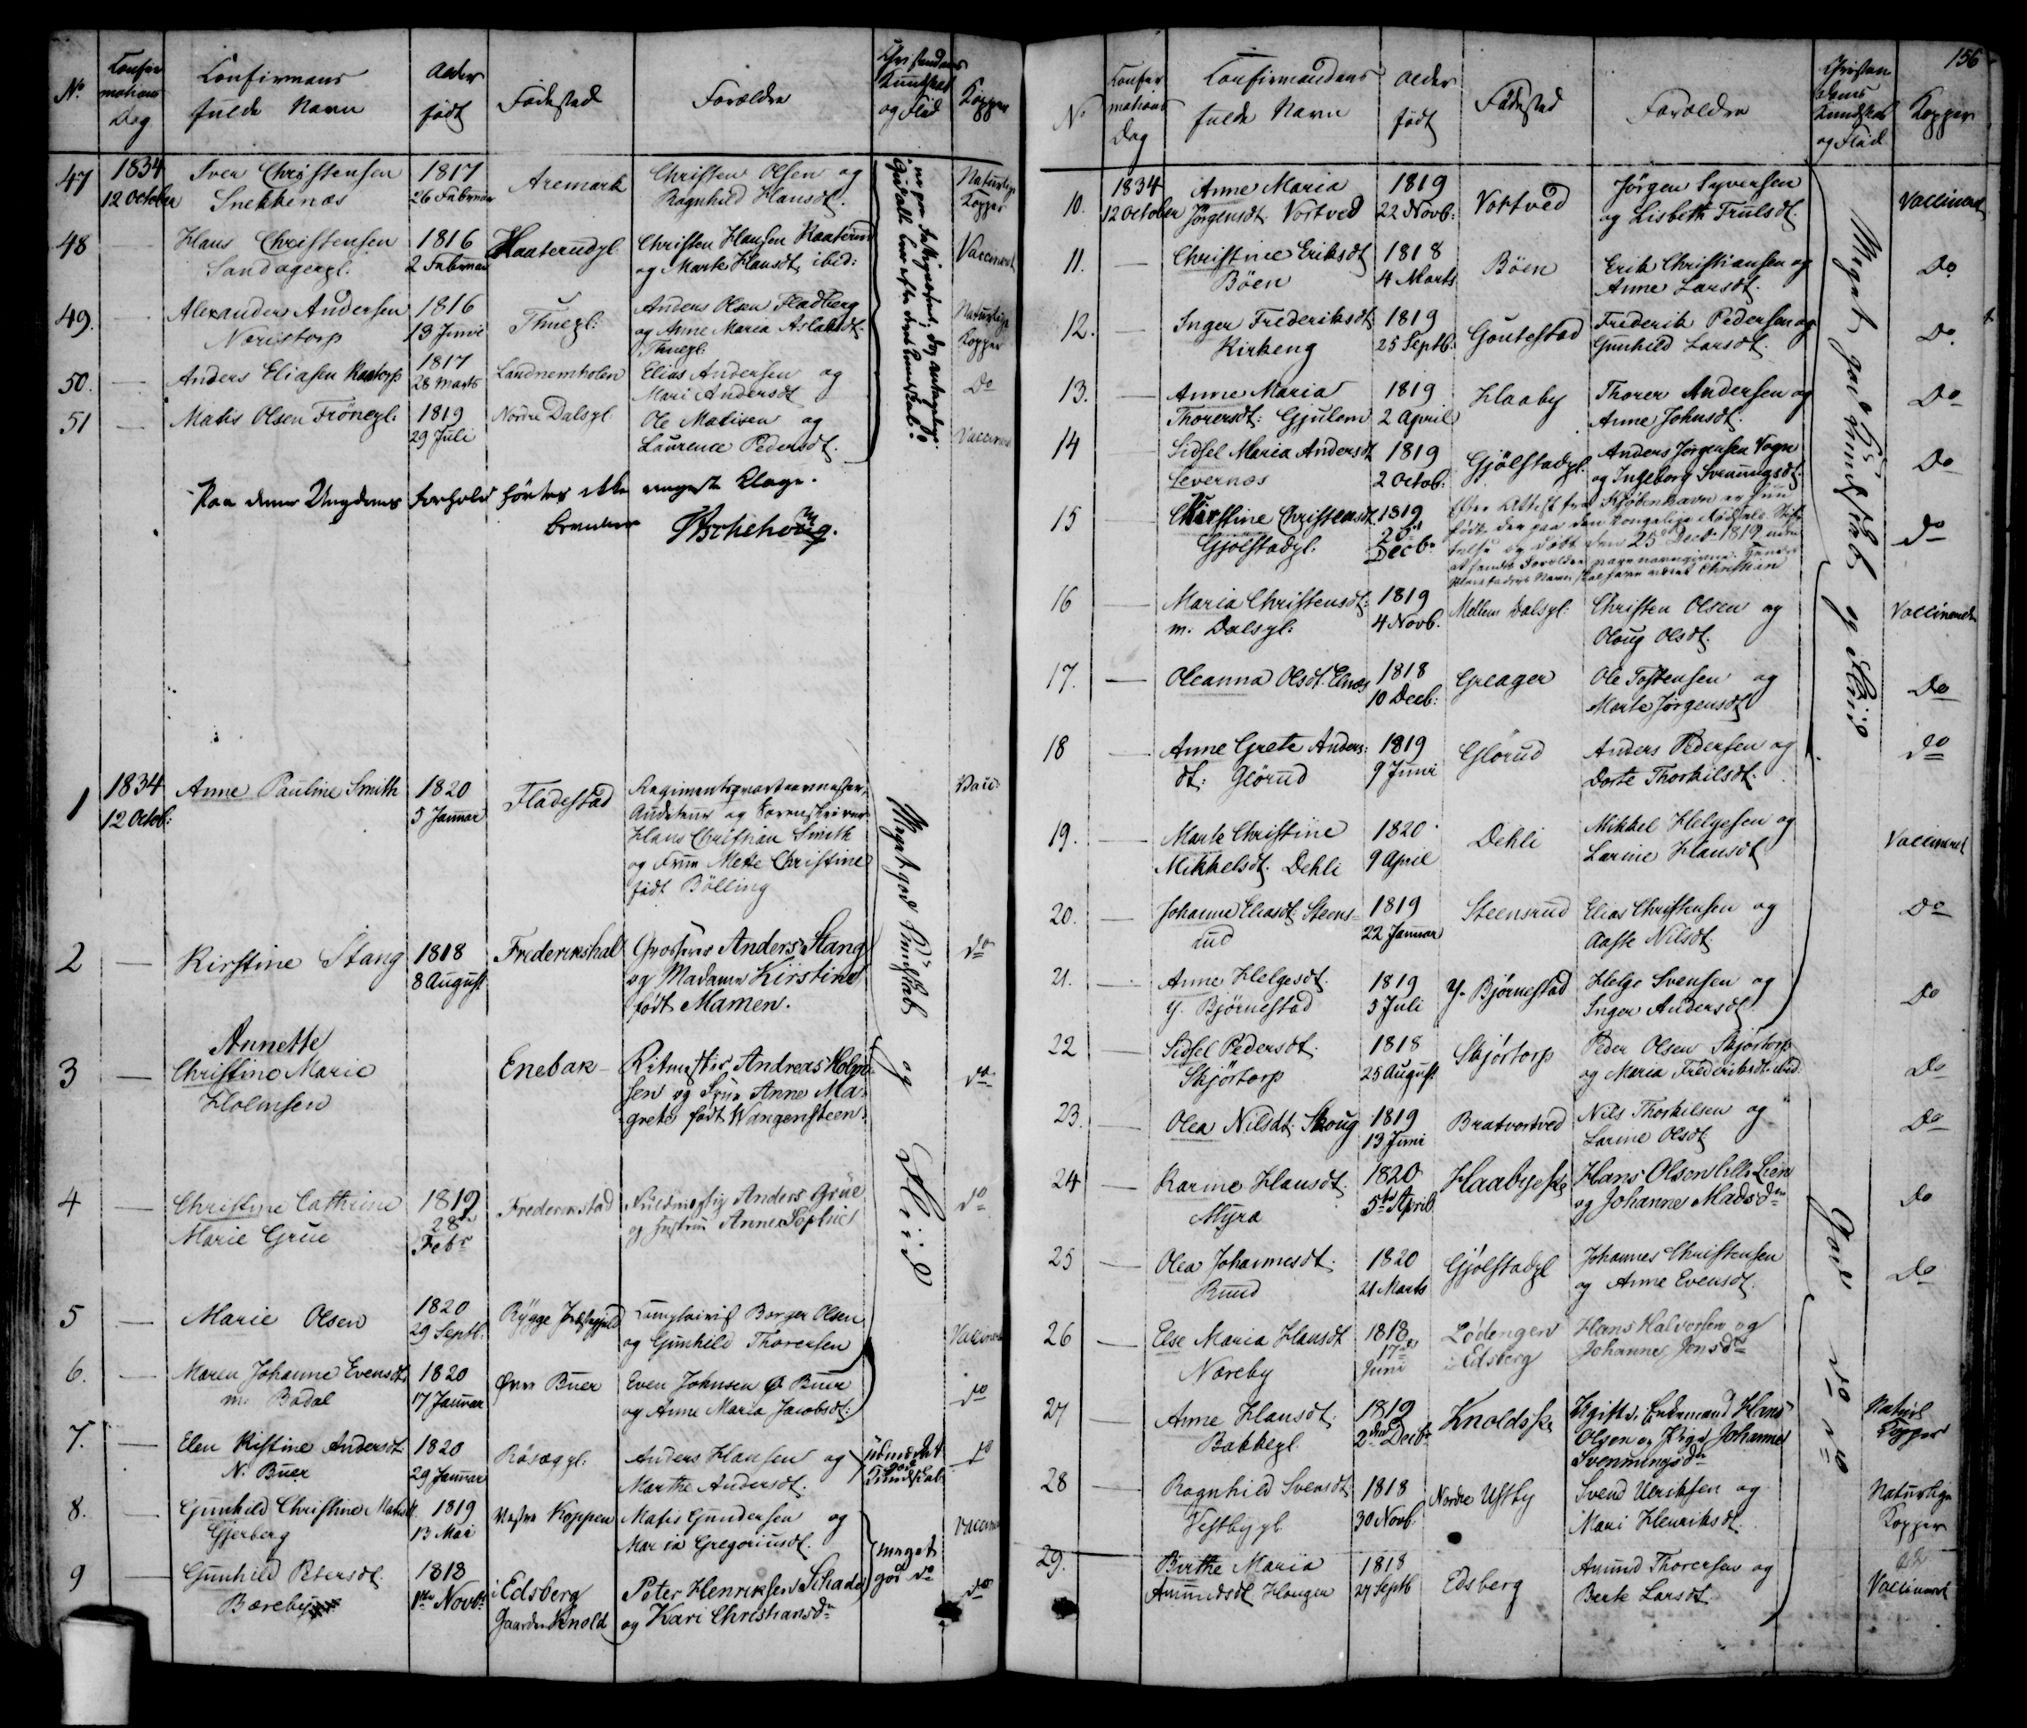 No
Confir
mations
Dag
Confirmans
fulde Navn
Alder
født
Fødested
Forældre
Christendoms
Kundskab
og Flid
Kopper
47
1834
12 October
Sven Christensen
Snekkenæs
1817
26 Februar
Aremark
Christen Olsen og
Ragnhild Hansdt.
Naturlige
Kopper
48
Hans Christensen
Sandagergl.
1816
2 Februar
Haaterudgl.
Christen Hansen Haaterud
og Marte Hansdt. ibid:
Vaccineret
49.
Alexander Andersen
1816
13 Junii
Thuegl:
Anders Olsen Fladberg
og Anne Maria Aslaksdt.
Thuegl.
Naturlige
Kopper
50.
Anders Eliasen
1817
28 Marts
Elias Andersen og
Mari Andersdt
Do
51
Matis Olsen Frönegl.
1819
29 Juli
Nordre Dalsgl
Ole Matisen og
Laurence Pedersdt.
Vaccineret
Paa denne Ungdoms Forhold hørtes ikke nogen Klage.
1
1834
12 Octob:
Anne Pauline Smith
1820
5 Januar
Fladestad
Regimentsqvarteermester,
Auditeur og Sorenskriver
Hans Christian Smith
og Frue Mette Christine
født Bölling
Vacc:
Meget god Kundskab og Flid
2
Kirstine Stang
1818
8 August
Frederikshal
Grosserer Anders Stang
og Madame Kirstine
født Mamen.
do
3
Annette
Christine Marie
Holmsen
Enebak
Ritmester Andreas Holm-
sen og Frue Anne Ma-
grete født Wangensteen.
do
4
Christine Cathrine
Marie Grüe
1819
28de
Febr
Frederikstad
Anders Grüe
og Hustru Anne Sophie
do
5
Marie Olsen
1820
29 Septb.
Rygge Præstegjeld
Borger Olsen
og Gunhild Thorersen
Vaccineret
6.
Maren Johanne Evensdt.
m: Bodal
1820
17 Januar
Øvre Buer
Even Johnsen Ø. Buer
og Anne Maria Jacobsdt:
do
7.
Elen Kistine Andersdt.
N. Buer
1820
29 Januar
Anders Hansen og
Marthe Andersdt.
udmærket
god
Kundskab
do
8.
Gunhild Christine Matisdt
Gjerberg
1819
13 Mai
Koppen
Matis Gundersen og
Maria Gregoriusdt.
Vaccineret
meget
god do
9
Gunhild Petersdt.
Bæreby
1818
1ste Novbr
i Edsberg
Gaarden Knold
Peter Henriksen Schade
og Kari Christiansdr
do
156
No
Confir
mations
Dag
Confirmandens
fulde Navn
Alder
født
Fødested
Forældre
Christen
doms
Kundskab
og Flid
Kopper
10.
1834
12 October
Anne Maria
Jörgensdt. Vortved
1819
22 Novb:
Vortved
Jörgen Syversen
og Lisbeth Trulsdt.
Vaccineret
Meget god Kundskab og Flid
11.
Christine Eriksdt
Böen
1818
4 Marts
Böen
Erik Christiansen og
Anne Larsdt.
Do
12.
Inger Frederiksdt.
Kirkeng
1819
25 Septb.
Goutestad
Frederik Pedersen og
Gunhild Larsdt.
Do
13.
Anne Maria
Thorersdt: Gjulem
1819
2 April
Haaby
Thorer Andersen og
Anne Johnsdt.
Do
14
Sidsel Maria Andersdt
Levernæs
1819
2 Octob.
Gjölstadgl.
Anders Jörgensen Vogn
og Ingeborg Svenningsdt.
Do
15
Kirstine Christensdt
Gjölstadgl.
1819
25de
Decbr
Efter Attest fra Kjøbenhavn er hun
født der paa den kongelige Födsels Stif-
telse og døbt den 25de Decbr 1819 uden
at hendes Forældre navngivne. Hendes
Navn skal have været Christian
do
16
Maria Christensdt:
m. Dalsgl:
1819
4 Novb.
Mellem Dalsgl:
Christen Olsen og
Oloug Olsdt.
Vaccineret
17.
Oleanna Olsdt.
1818
10 Decb:
Greager
Ole Tostensen og
Marte Jörgensdt
Do
18
Anne Grete Anders-
dt: Glörud
1819
9 Juni
Glörud
Anders Pedersen og
Dorte Thorkilsdt.
do
19.
Marte Christine
Mikkelsdt. Dehli
1820
9 April
Dehli
Mikkel Helgesen og
Larine Hansdt
Vaccineret
20.
Johanne Eliasdt. Steens-
rud
1819
22 Januar
Steensrud
Elias Christensen og
Aaste Nilsdt.
Do
21.
Anne Helgesdt.
y. Björnestad
1819
5 Juli
Y. Björnestad
Helge Svensen og
Inger Andersdt.
Do
22
Sidsel Pedersdt.
Skjörtorp
1818
25 August
Skjörtorp
Peder Olsen Skjörtorp
og Maria Frederiksdt. ibid.
Do
God do do
23.
Olea Nilsdt. Skoug
1819
13 Juni
Bratvortved
Nils Thorkilsen og
Larine Olsdt.
Do
24
Karine Hansdt.
Myra
1820
5te April
Haabyeie
Hans Olsen lille Lien
og Johanne Madsdr
Do
25
Olea Johannesdt.
Ruud
1820
21 Marts
Gjölstadgl
Johannes Christensen
og Anne Evensdt.
Do
26
Else Maria Hansdt
Næreby
1818
17de
Juni
Lödengen
i Edsberg
Hans Halvorsen og
Johanne Jonsdr
27
Anne Hansdt.
Bakkegl.
1819
2den Decbr
Knoldseie
Ugifte Enkemand Hans
Olsen og Pige Johanne
Svenningsdr
Naturl
Kopper
28
Ragnhild Svensdt
Vestbygl
1818
30 Novb.
Nordre Ustby
Svend Ulriksen og
Mari Henriksdt.
Naturlige
Kopper
29.
Birthe Maria
Amundsdt. Haugen
1818
27 Septb
Edsberg
Amund Thorersen og
Berte Larsdt.
Vaccineret